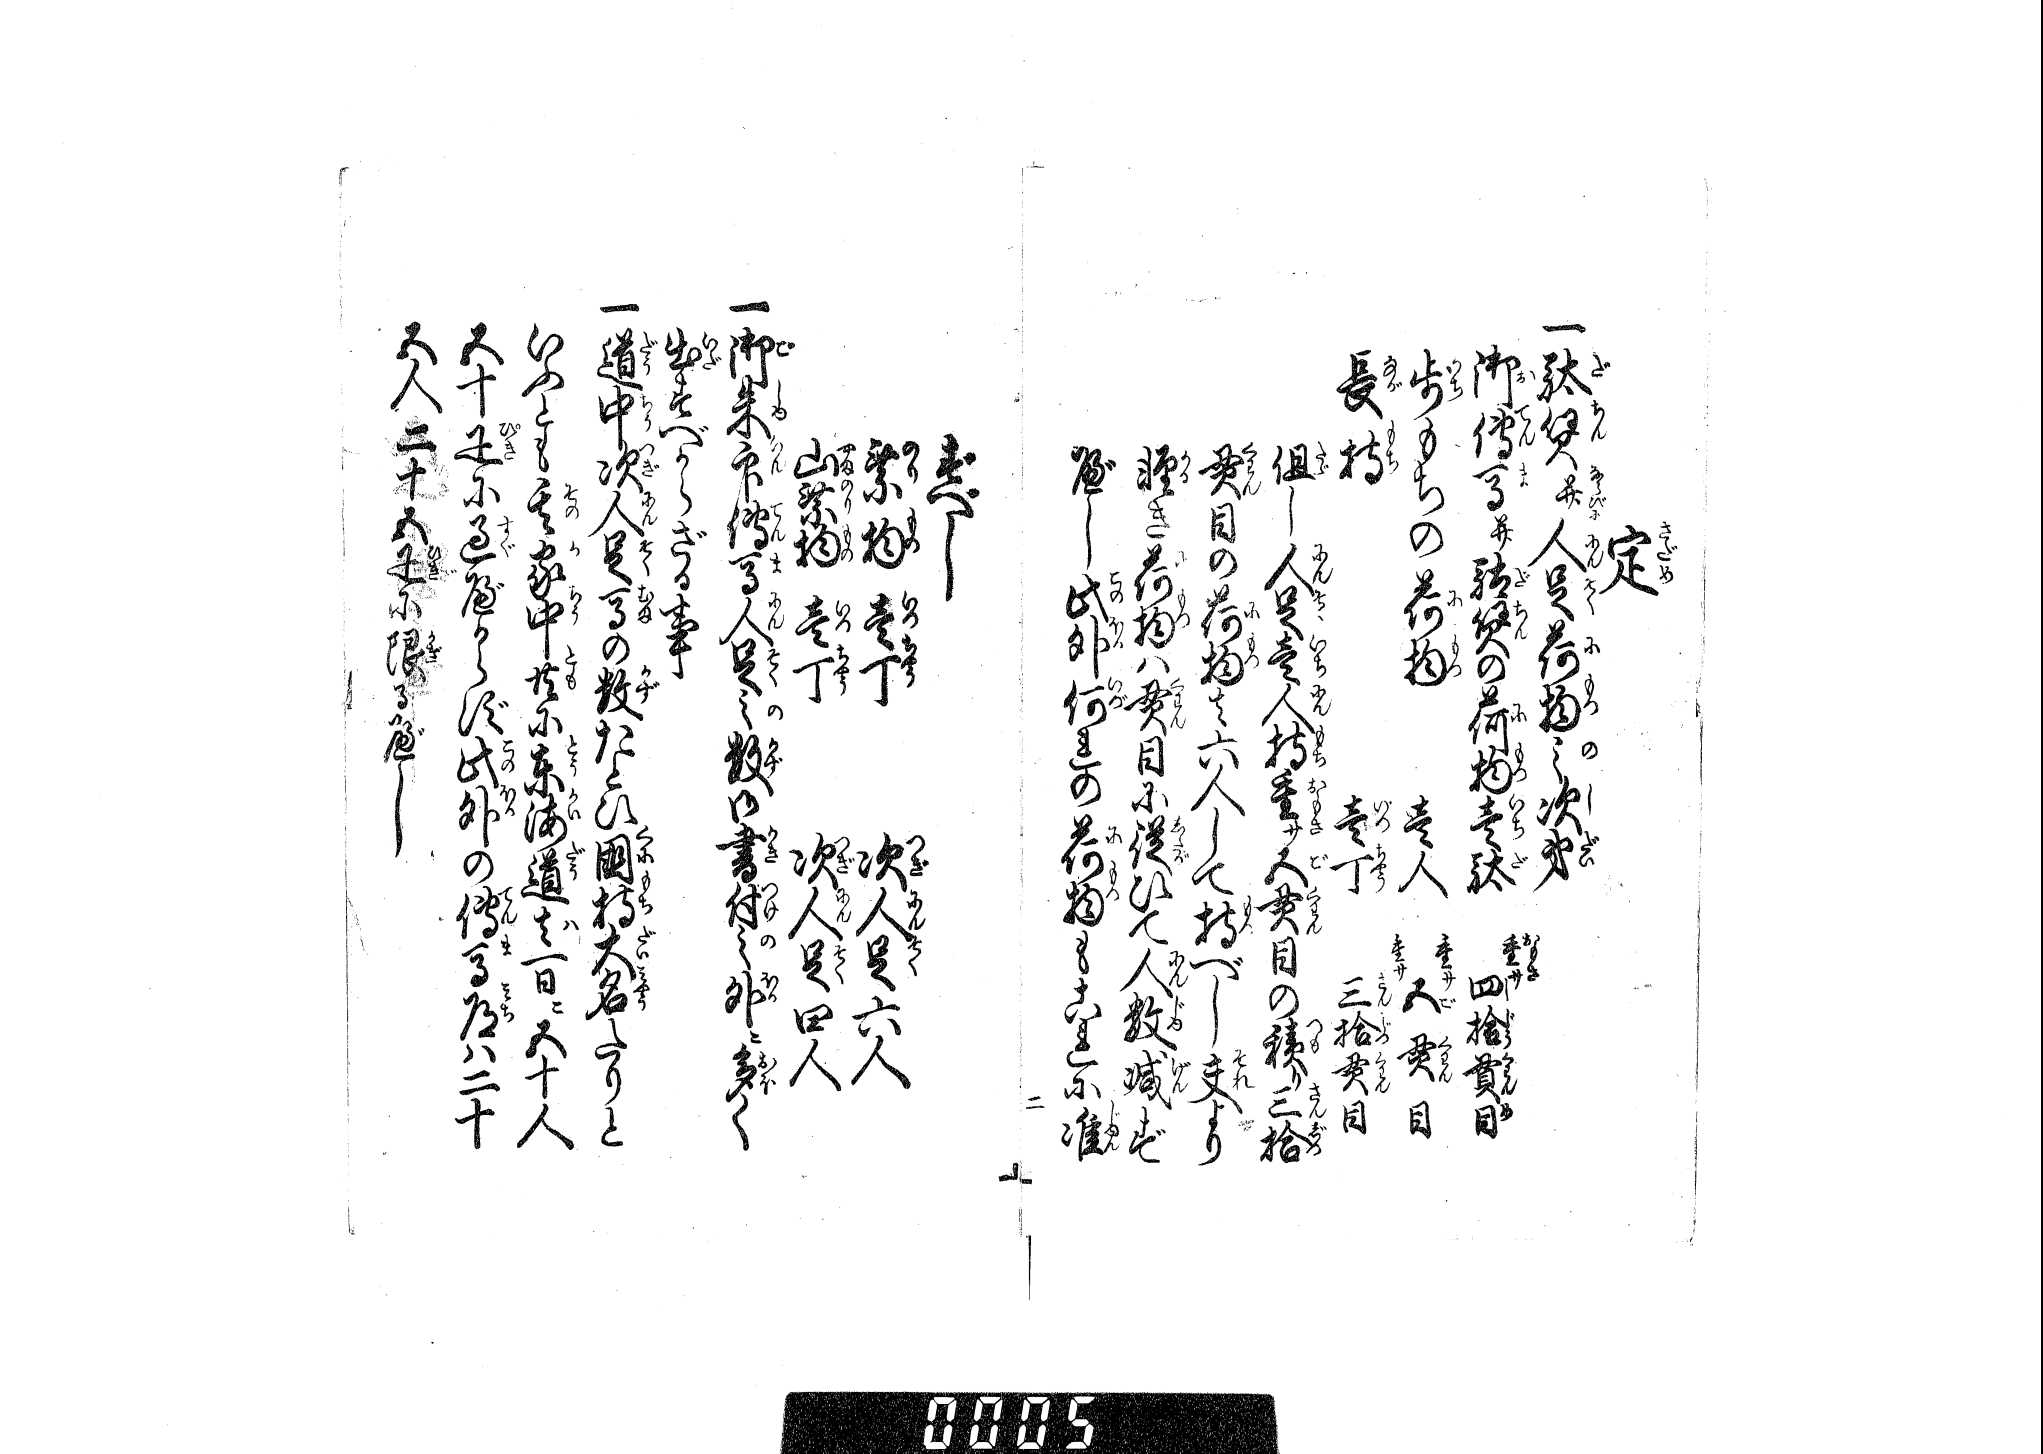 定
一駄賃并人足荷物之次第
御傳馬并駄賃の荷物壱駄 重サ四拾貫目
歩もちの荷物 壱人 重サ五貫目
長持 壱丁 重サ三拾貫目
但し人足壱人持重サ五貫目の積り三拾
貫目の荷物ハ六人して持べし夫より
軽き荷物ハ貫目に従ひて人数減ず
べし此外何連の荷物もこ連に准
ずべし
乗物 壱丁 次人足六人
山乗物 壱丁 次人足四人
一御朱印傳馬人足之数御書付之外ニ多く
出すべからざる事
一道中次人足馬の数たとひ國持大名たりと
いふとも其家中共に東海道ハ一日ニ五十人
五十疋に過べからず此外の傳馬道ハ二十
五人二十五疋に限るべし
二
0005